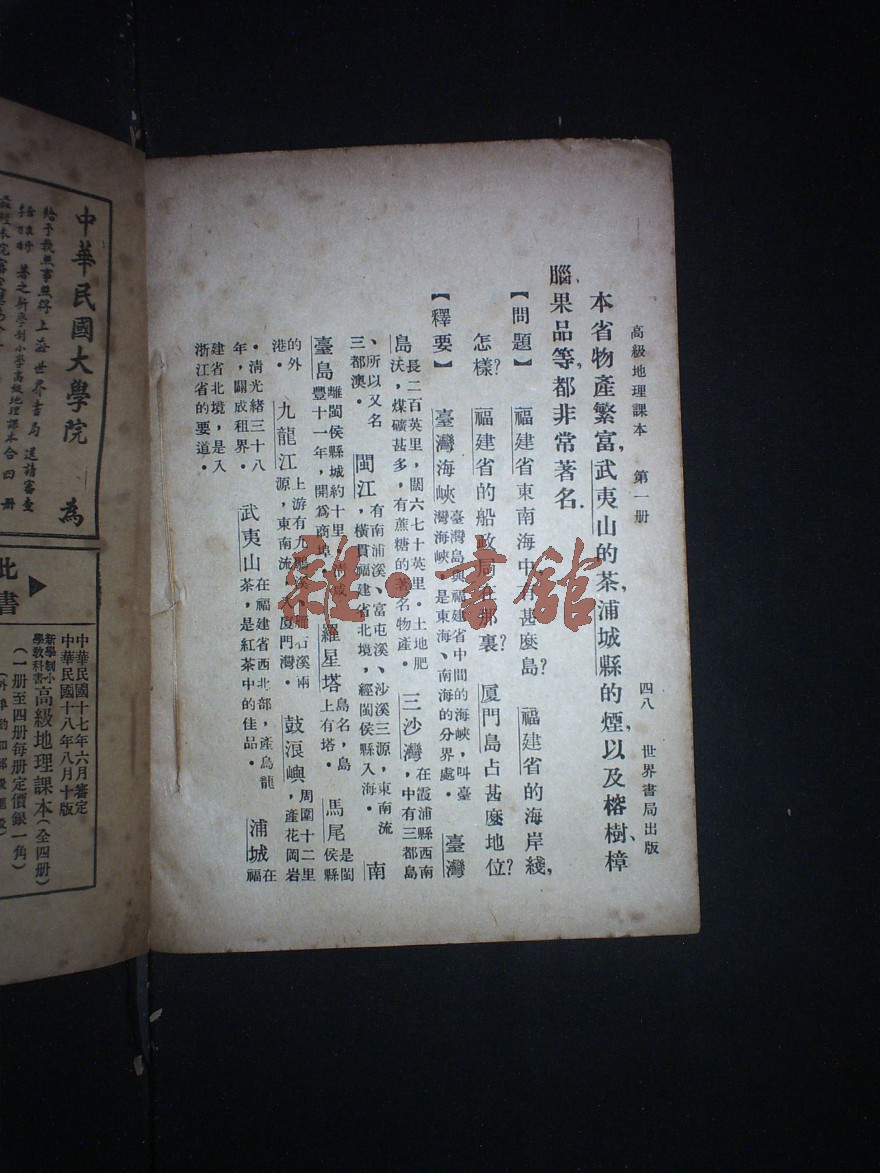 高級地理課本　第一册　四八　世界書局出版
本省物產繁富，武夷山的茶，浦城縣的煙，以及榕樹、樟
腦、果品等，都非常著名．
【問題】　福建省東南海中有甚麼島？　福建省的海岸綫，
怎樣？　福建省的船政局在那裏？　厦門島占甚麼地位？
【釋要】　臺灣海峽　臺灣島與福建省中間的海峽，叫臺
灣海峽，是東海、南海的分界處．　臺灣
島　長二百英里，闊六七十英里．土地肥
沃，煤礦甚多，有蔗糖的著名物產．　三沙灣　在霞浦縣西南
，中有三都島
、所以又名
三都澳．　閩江　有南浦溪、富屯溪、沙溪三源，東南流
，橫貫福建省北境，經閩侯縣入海．　南
臺島　離閩侯縣城約十里，清咸
豐十一年，開爲商埠．　羅星塔　島名，島
上有塔．　馬尾　是閩
侯縣
的外
港．　九龍江　上游有九鵬溪、雁石溪兩
源，東南流，入厦門灣．　鼓浪嶼　周圍十二里
，產花岡岩
．清光緒三十八
年，闢成租界．　武夷山　在福建省西北部，產烏龍
茶，是紅茶中的佳品．　浦城　在
福
建省北境，是入
浙江省的要道．
雜·書館
中華民國大學院　爲
上海世界書局　呈請審查
著之新學制小學高級地理課本合四册
此書
中華民國十七年六月審定
中華民國十八年八月十版
新學制小學教科書高級地理課本（全四册）
（一册至四册每册定價銀一角）